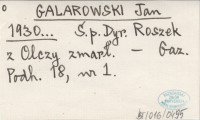 GALAROWSKI Jan
1930... Ś.p. Dyr. Roszek
z Olczy zmarł. – Gaz.
Podh. 18, nr 1.